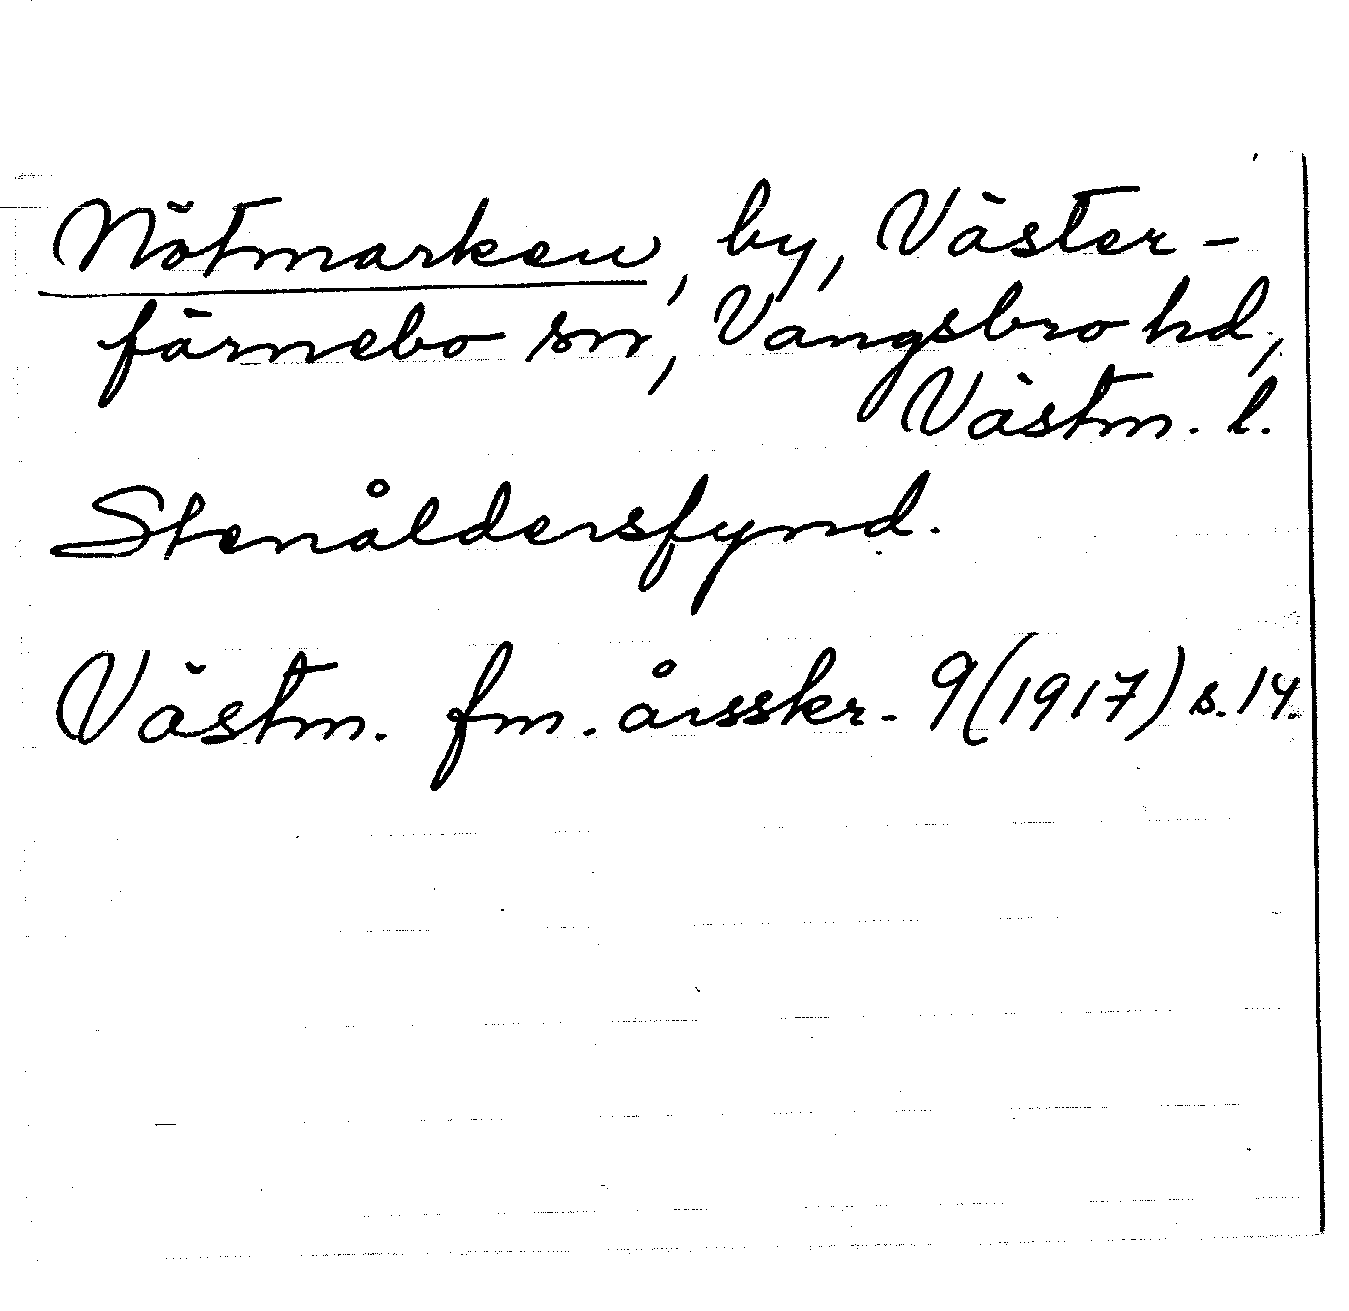 Nötmarken, by, Väster-
färnebo sn, Vangsbro hd,
Västm. l.
Stenåldersfynd.
Västm. fm. årsskr. 9(1917) s. 14.